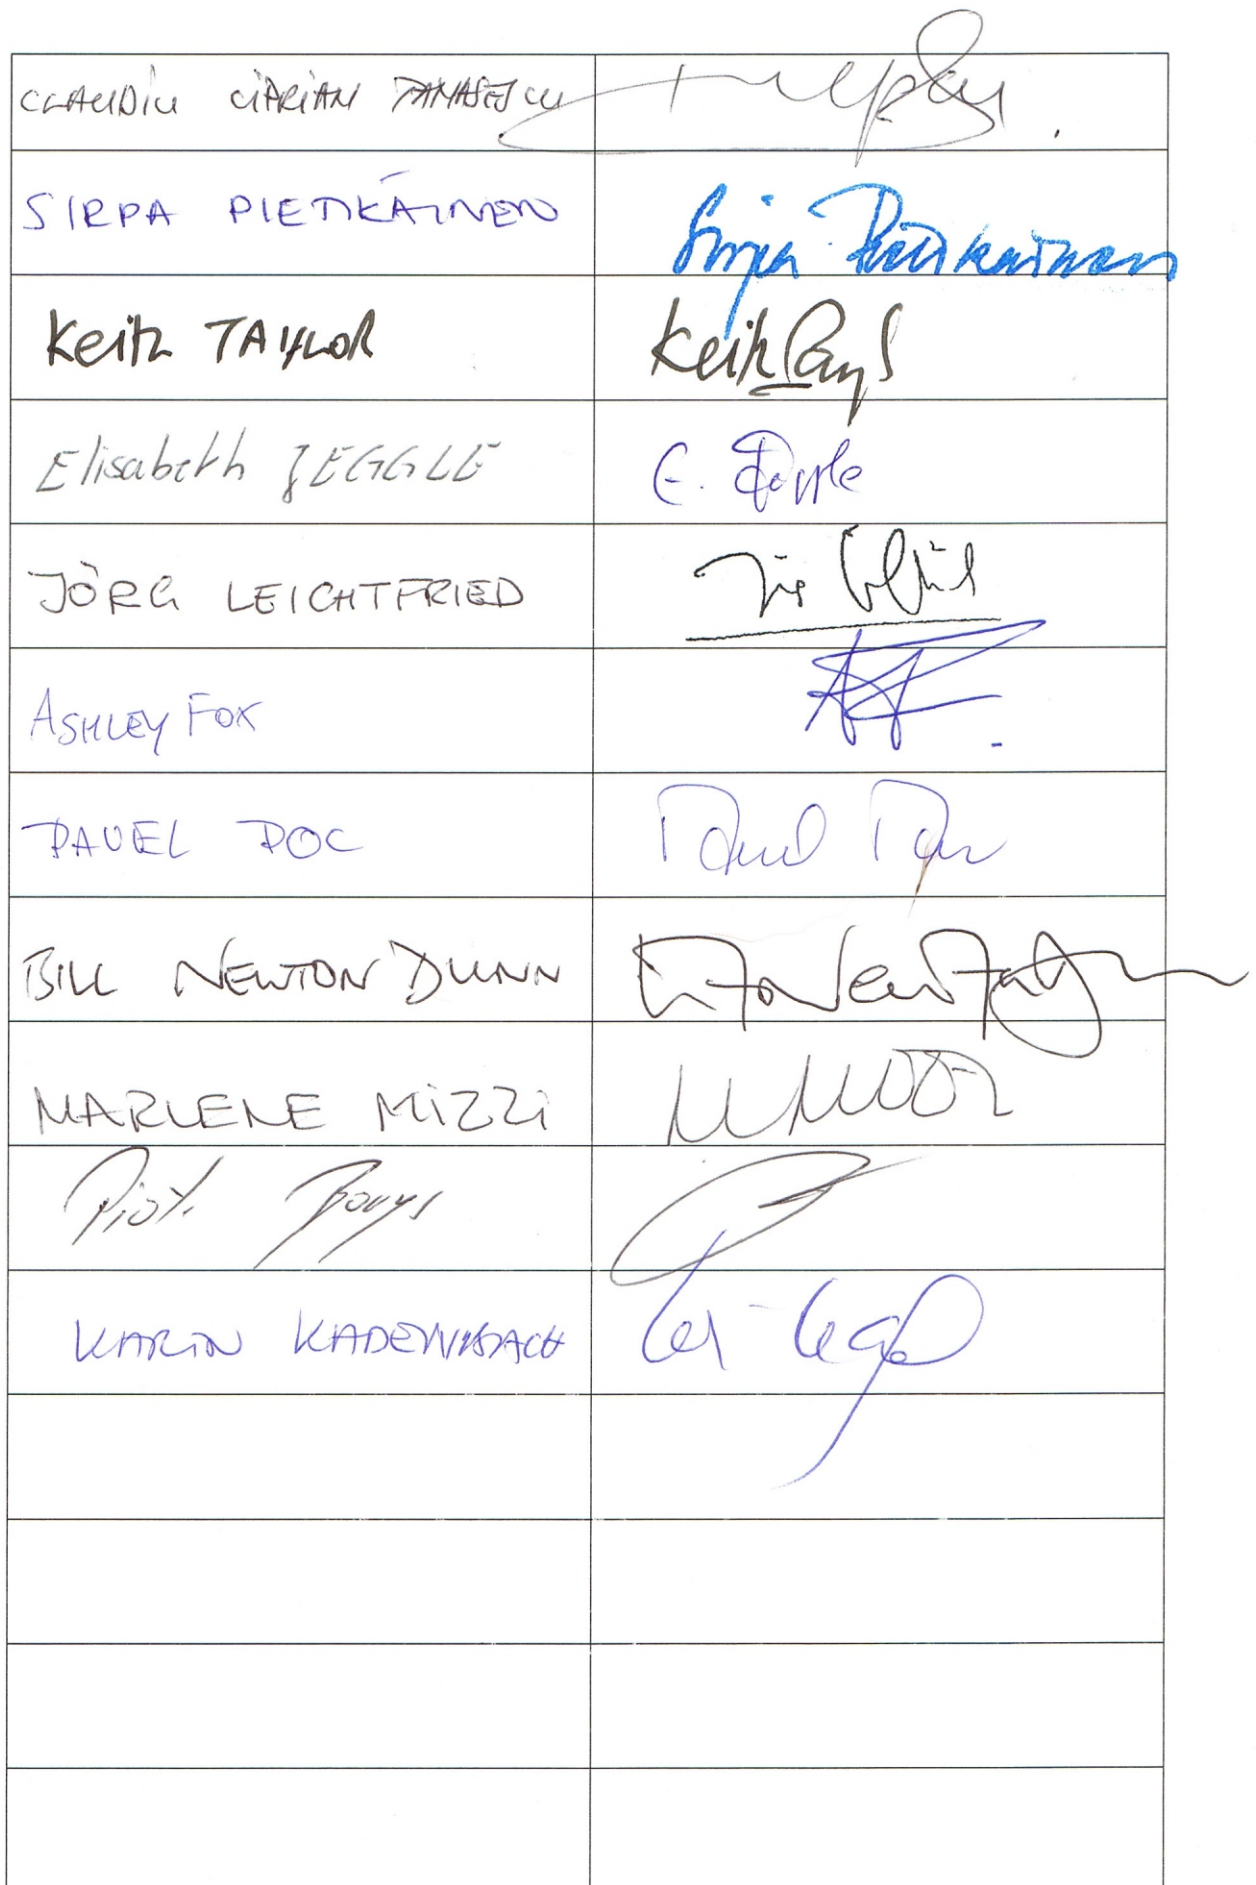 CLAUDIU CIPRIAN TANASESCU
SIRPA PIETIKÄINEN Sirpa Pietikäinen
Keith TAYLOR Keith
Elisabeth JEGGLE E. Jeggle
JÖRG LEICHTFRIED
ASHLEY FOX
PAVEL POC Pavel Poc
BILL NEWTON DUNN
MARLENE MIZZI
Piotr Borys
KARIN KADENBACH